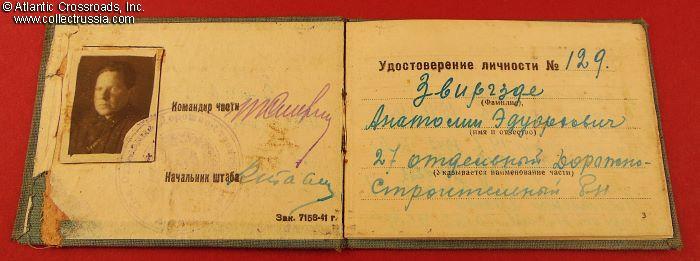 © Atlantic Crossroads, Inc.
www.collectrussia.com
Командир части
Начальник штаба
Зак. 7158-41 г.
Удостоверение личности № 129.
Звиргзде
(Фамилия)
Анатолий Эдуардович
(имя и отчество)
27 отдельный дорожно-
(указывается наименование части)
строительный Б-н
3